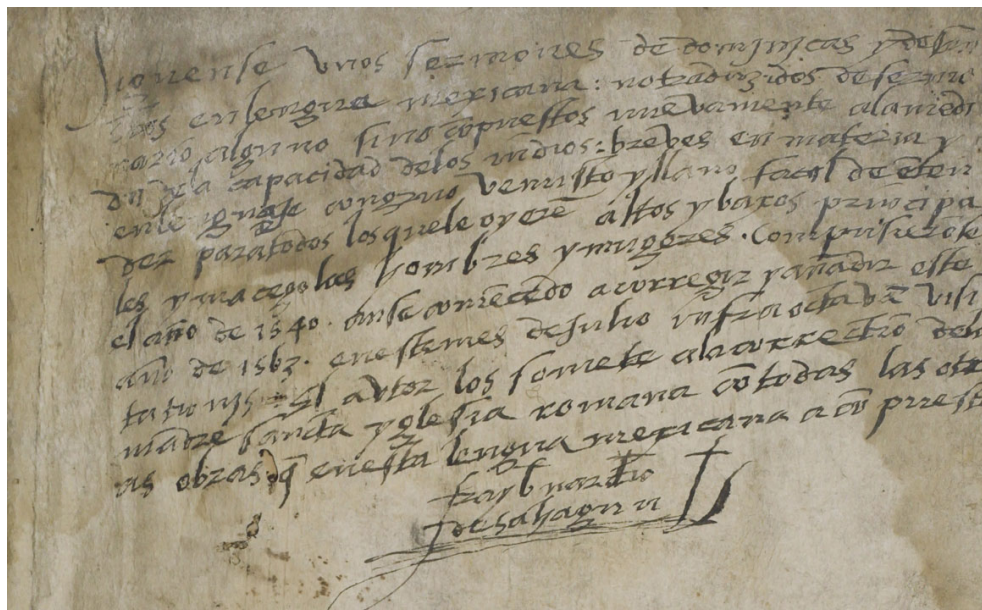 Siguense unos sermones de dominicas y de san
ctos en lengua mexicana: no traduzidos de sermo
nario alguno sino cõpuestos nuevamente ala medi
da de la capacidad delos indios: breves en materia y
en lenguaje congruo venusto y llano facil de ẽten
der para todos los quele oyerẽ altos y baxos principa
les y macegales hombres y mugeres. Compusierõse
el año de 1540. anse comẽçado a corregir y añadir este
año de 1563. eneste mes de Julio infraoctavã visi
tationis. El autor los somete ala correctiõ dela
madre sancta yglesia romana cõ todas las otr
as obras q̃ en esta lengua mexicana a cõpuesto
fray bnardio
de sahagun